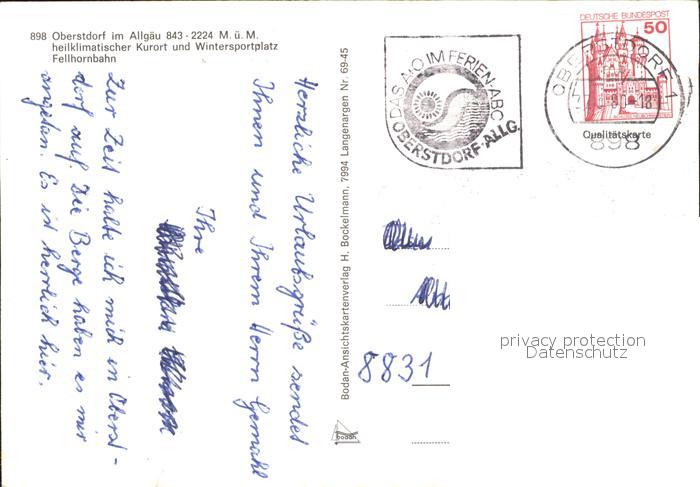 898 Oberstdorf im Allgäu 843 - 2224 M. ü. M.
heilklimatischer Kurort und Wintersportplatz
Fellhornbahn
Herzliche Urlaubsgrüße sendet
Ihnen und Ihrem Herrn Gemahl
Ihre
Zur Zeit halte ich mich in Oberst-
dorf auf. Die Berge haben es mir
angetan. Es ist herrlich hier.
Bodan-Ansichtskartenverlag H. Bockelmann, 7994 Langenargen Nr. 69-45
bodan
DAS A·O IM FERIEN-ABC
OBERSTDORF-ALLG.
DEUTSCHE BUNDESPOST
50
OBERSTDORF 1
Qualitätskarte
898
8831
privacy protection
Datenschutz